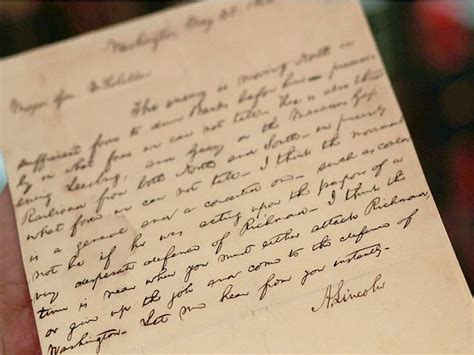 Washington, May 25, 186
Major Gen. McClellan
The enemy is moving North in
sufficient force to drive Banks before him— precise-
ly in what force we can not tell. He is also threat-
ening Leesburg, and Geary on the Manassas Gap
Railroad from both North and South— in precisely
what force we can not tell— I think the movement
is a general and concerted one— such as could
not be if he was acting upon the purpose of a
very desperate defence of Richmond— I think the
time is near when you must either attack Richmond,
or give up the job and come to the defence of
Washington. Let me hear from you instantly—
A. Lincoln